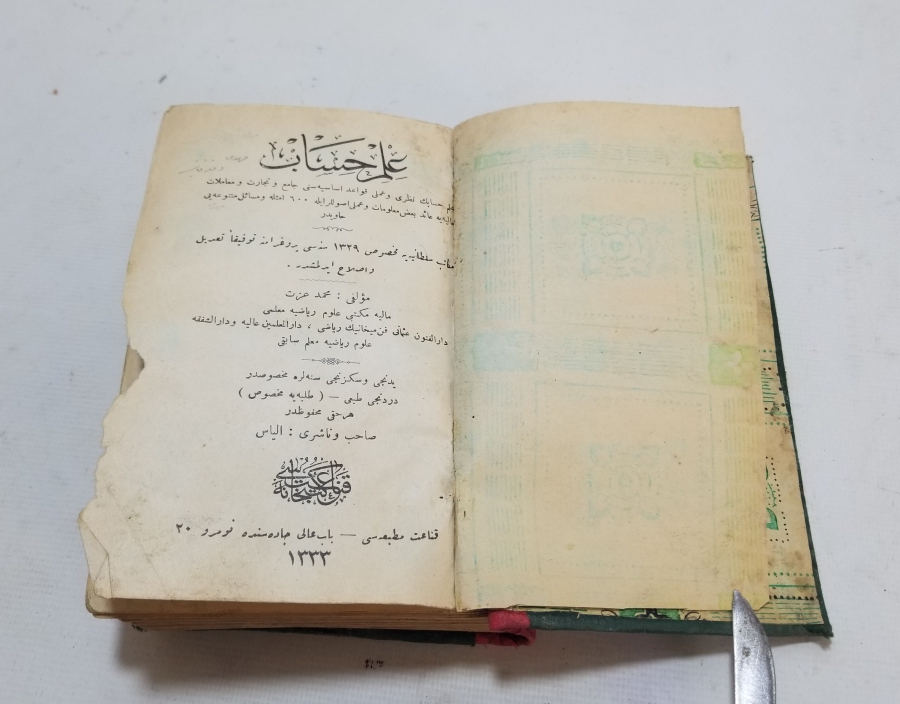 علم حساب
علم حسابك نظری و عملی قواعد اساسیه‌سنی جامع و تجارت و معاملات
مالیه‌یه عائد بعض معلومات و عملی اصوللر ایله ٦٠٠ امثله و مسائل متنوعه‌یی
حاویدر
مكاتب سلطانیه‌یه مخصوص ١٣٢٩ سنه‌سی پروغرامنه توفیقاً تعدیل
و اصلاح ایدلمشدر .
مؤلفی : محمد عزت
مالیه مكتبی علوم ریاضیه معلمی
دارالفنون عثمانی فن میخانیك ریاضی ، دارالمعلمین عالیه و دارالشفقه
علوم ریاضیه معلم سابقی
یدنجی و سكزنجی سنه‌لره مخصوصدر
دردنجی طبعی — ( طلبه‌یه مخصوص )
هر حقی محفوظدر
صاحب و ناشری : الیاس
قناعت كتبخانه‌سی
قناعت مطبعه‌سی — باب عالی جاده‌سنده نومرو ٢٠
١٣٣٣